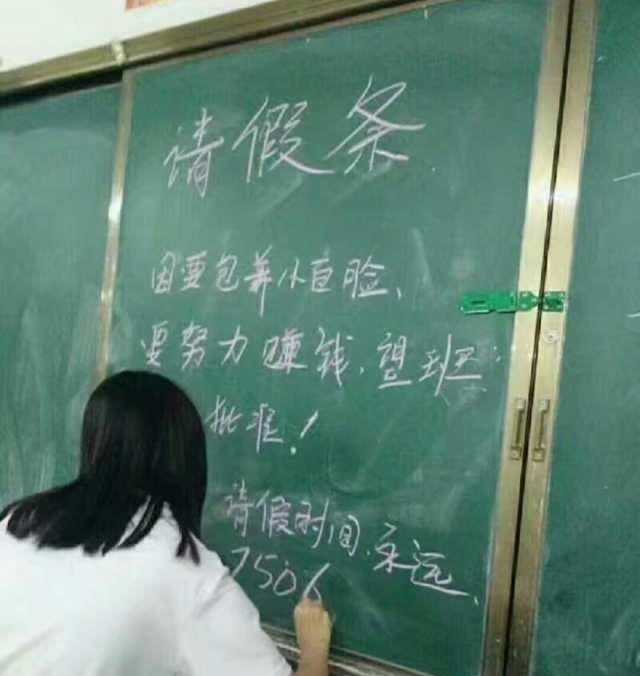 请假条
因要包养小白脸、
要努力赚钱,望班
批准!
请假时间、永远、
7506